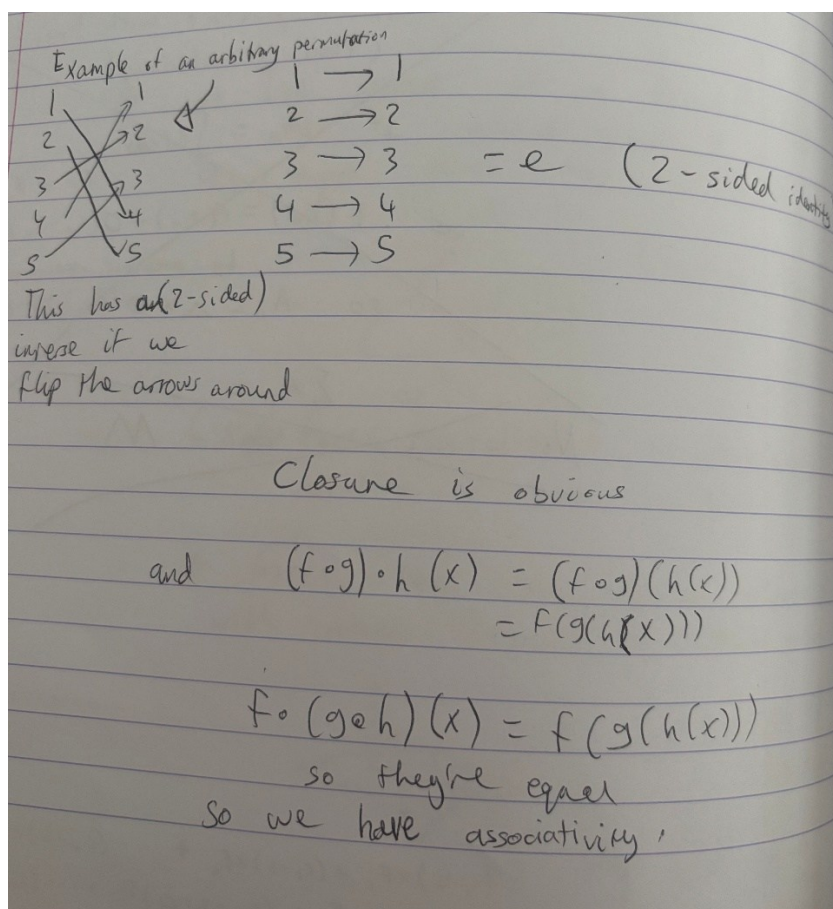 Example of an arbitrary permutation
1 1 1 → 1
2 2 2 → 2
3 3 3 → 3 = e (2-sided identity
4 4 4 → 4
5 5 5 → 5
This has a (2-sided)
inverse if we
flip the arrows around
Closure is obvious
and (f∘g)∘h (x) = (f∘g)(h(x))
= f(g(h(x)))
f∘(g∘h)(x) = f(g(h(x)))
so they're equal
so we have associativity.